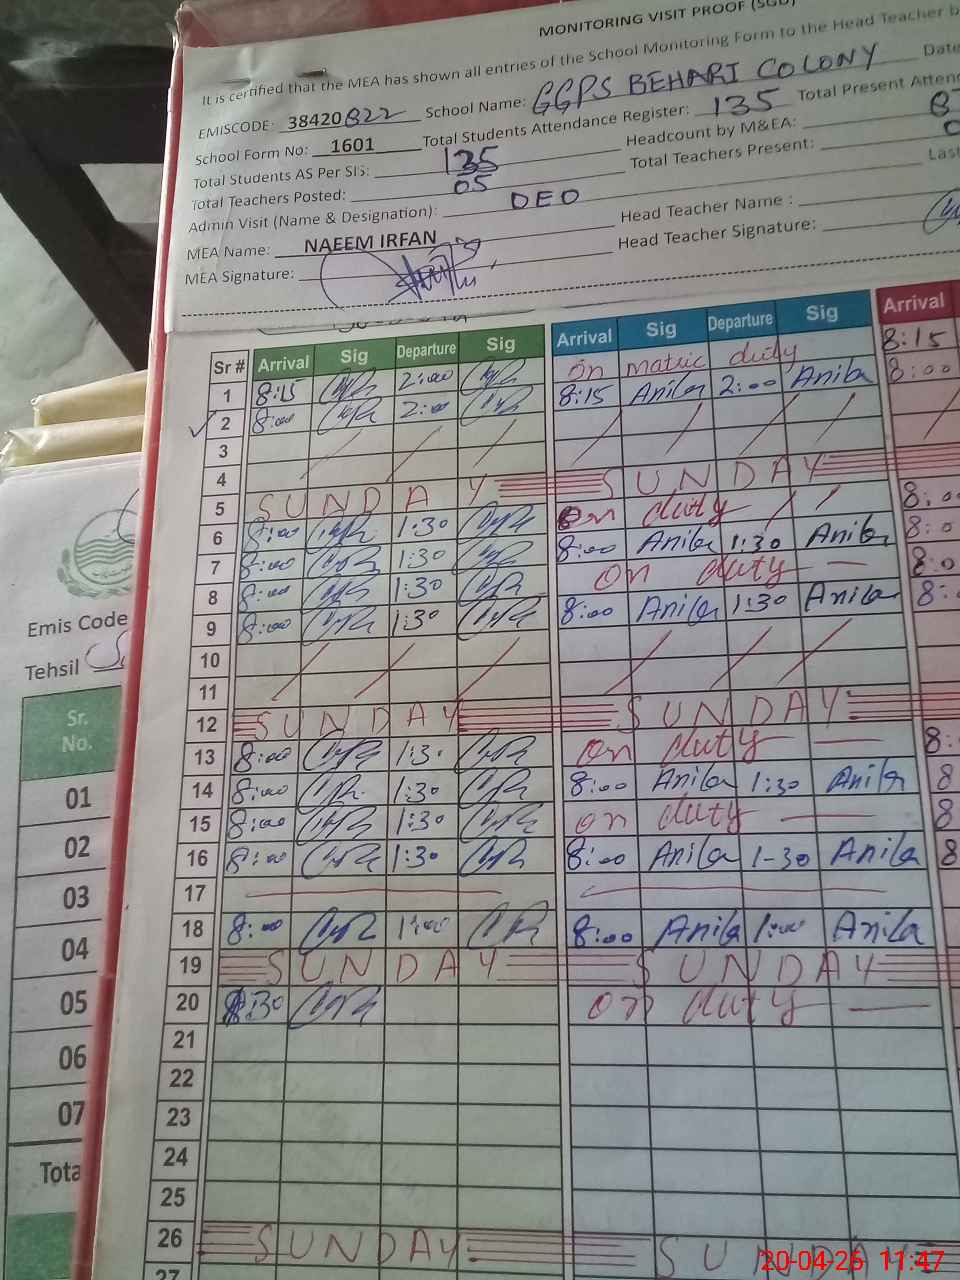 MONITORING VISIT PROOF (SGD)
It is certified that the MEA has shown all entries of the School Monitoring Form to the Head Teacher b
EMISCODE: 38420822 School Name: GGPS BEHARI COLONY Date
School Form No: 1601 Total Students Attendance Register: 135 Total Present Atten
Total Students AS Per SIS: 135 Headcount by M&EA: 8
Total Teachers Posted: 05 Total Teachers Present:
Admin Visit (Name & Designation): DEO Last
MEA Name: NAEEM IRFAN Head Teacher Name :
MEA Signature: Head Teacher Signature:
Sr # Arrival Sig Departure Sig Arrival Sig Departure Sig Arrival
on matric duty 8:15
1 8:15 2:00 8:15 Anila 2:00 Anila 8:00
2 8:00 2:00
3
4
5 SUNDAY SUNDAY
6 8:00 1:30 on duty 8:00
7 8:00 1:30 8:00 Anila 1:30 Anila 8:0
8 8:00 1:30 on duty 8:0
9 8:00 1:30 8:00 Anila 1:30 Anila 8:
10
11
12 SUNDAY SUNDAY
13 8:00 1:30 on duty 8:
14 8:00 1:30 8:00 Anila 1:30 Anila 8
15 8:00 1:30 on duty 8
16 8:00 1:30 8:00 Anila 1-30 Anila 8
17
18 8:00 1:00 8:00 Anila 1:00 Anila
19 SUNDAY SUNDAY
20 8:30 on duty
21
22
23
24
25
26 SUNDAY SUNDAY
27
Emis Code
Tehsil
Sr. No.
01
02
03
04
05
06
07
Tota
20-04-26 11:47